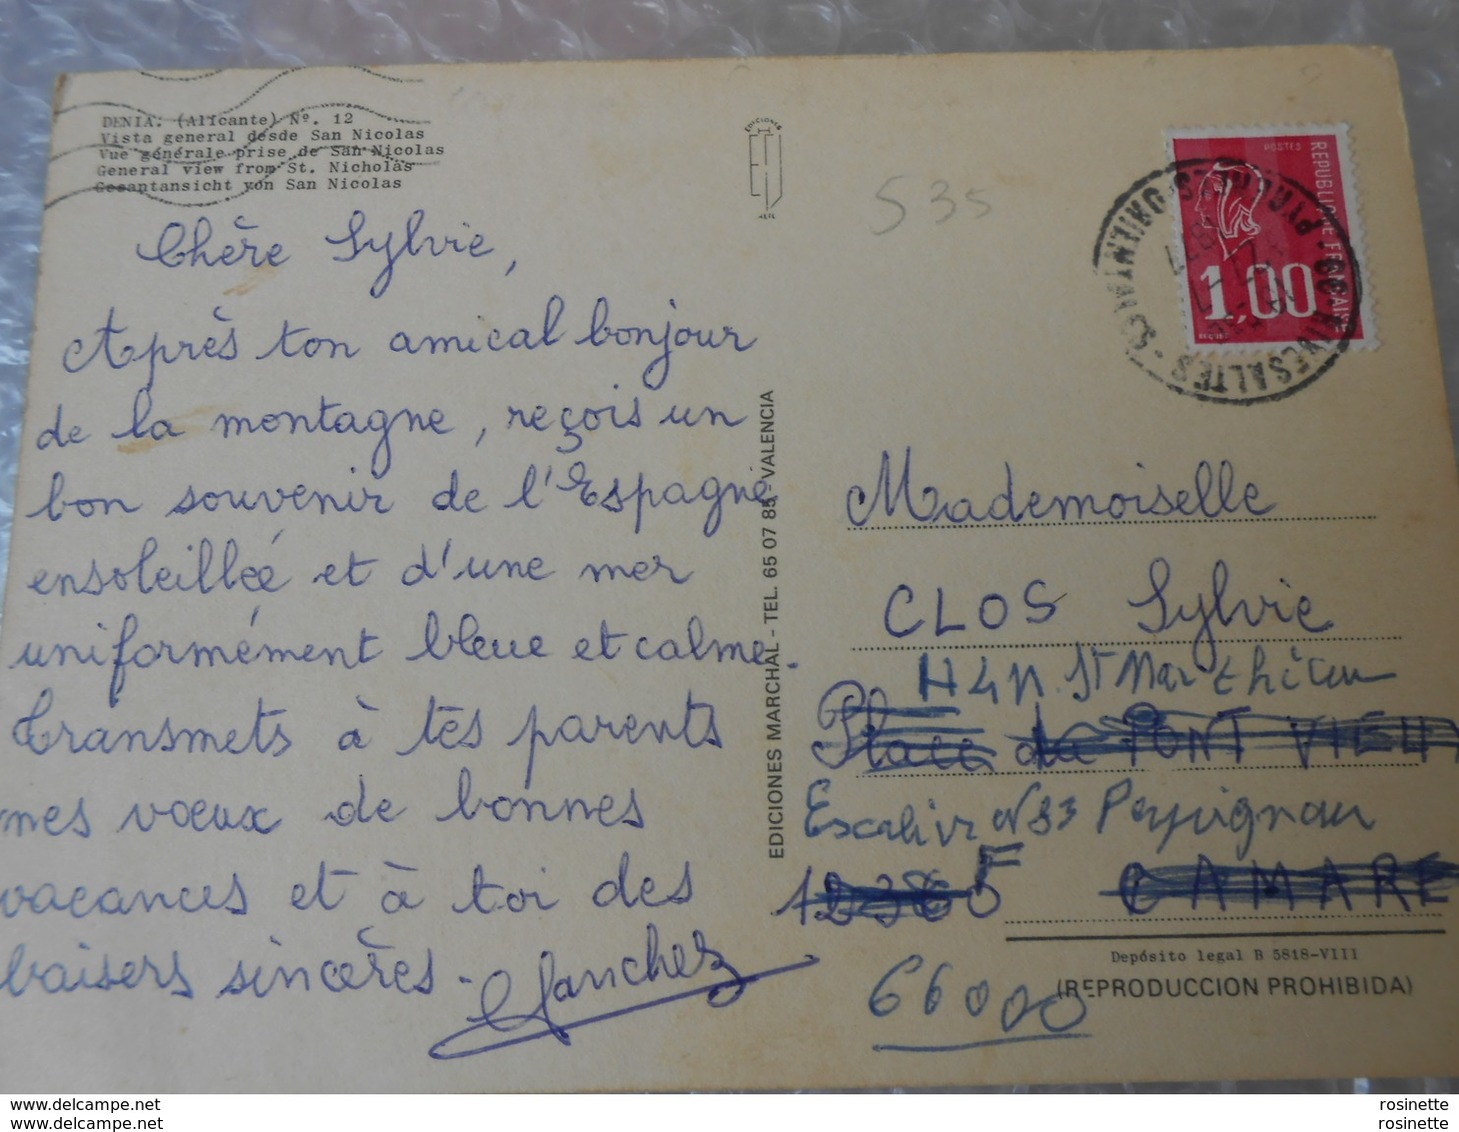 DENIA: (Alicante) Nº. 12
Vista general desde San Nicolas
Vue générale prise de San Nicolas
General view from St. Nicholas
Gesantansicht von San Nicolas
EDICIONES
535
POSTES
REPUBLIQUE FRANÇAISE
1,00
RIVESALTES
PYRENEES ORIENTALES
Chère Sylvie,
Après ton amical bonjour
de la montagne, reçois un
bon souvenir de l'Espagne
ensoleillée et d'une mer
uniformément bleue et calme.
Transmets à tes parents
mes vœux de bonnes
vacances et à toi des
baisers sincères.
Sanchez
EDICIONES MARCHAL - TEL. 65 07 85 - VALENCIA
Mademoiselle
CLOS Sylvie
H4N. St
Place du PONT VIEUX
Perpignan
CAMARE
66000
Depósito legal B 5818-VIII
(REPRODUCCION PROHIBIDA)
www.delcampe.net
www.delcampe.net
rosinette
rosinette